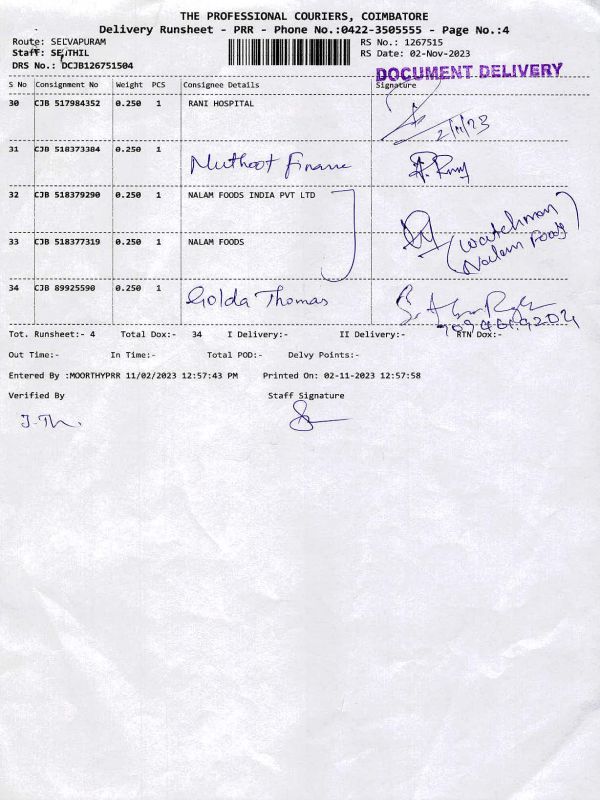 THE PROFESSIONAL COURIERS, COIMBATORE
Delivery Runsheet - PRR - Phone No.:0422-3505555 - Page No.:4
Route: SELVAPURAM RS No.: 1267515
Staff: SENTHIL RS Date: 02-Nov-2023
DRS No.: DCJB126751504 DOCUMENT DELIVERY
S No Consignment No Weight PCS Consignee Details Signature
30 CJB 517984352 0.250 1 RANI HOSPITAL
2/11/23
31 CJB 518373384 0.250 1 Muthoot Finance
32 CJB 518379290 0.250 1 NALAM FOODS INDIA PVT LTD
(Watchman
33 CJB 518377319 0.250 1 NALAM FOODS Nalam Foods)
34 CJB 89925590 0.250 1 Golda Thomas
Tot. Runsheet:- 4 Total Dox:- 34 I Delivery:- II Delivery:- RTN Dox:-
Out Time:- In Time:- Total POD:- Delvy Points:-
Entered By :MOORTHYPRR 11/02/2023 12:57:43 PM Printed On: 02-11-2023 12:57:58
Verified By Staff Signature